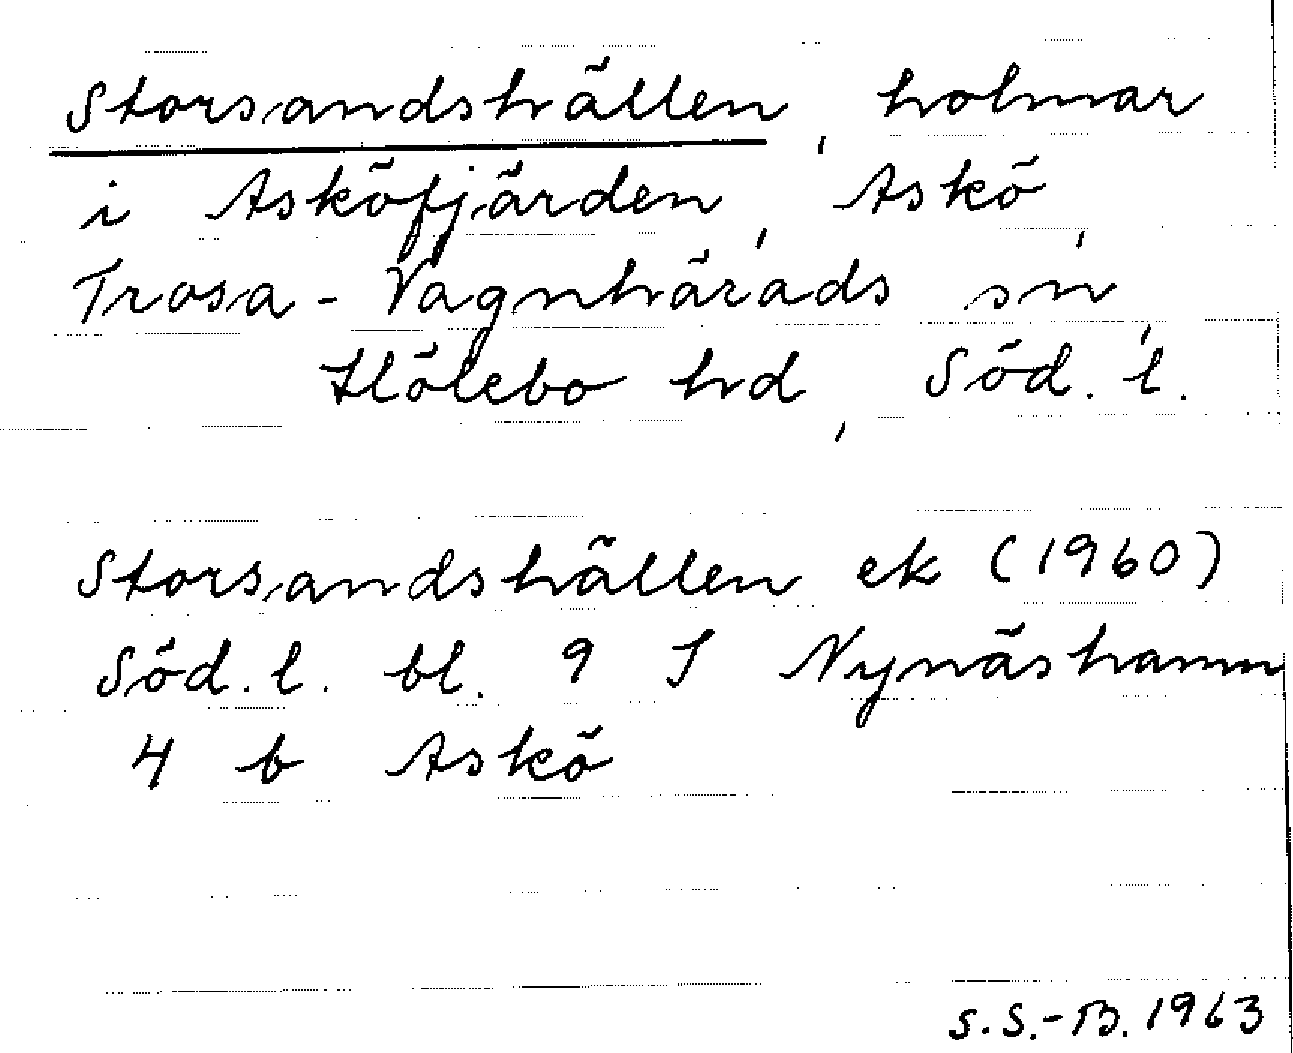 Storsandshällen, holmar
i Asköfjärden, Askö,
Trosa-Vagnhärads sn,
Hölebo hd, Söd. l.
Storsandshällen ek (1960)
Söd. l. bl. 9 I Nynäshamn
4 b Askö
S.S.-B. 1963